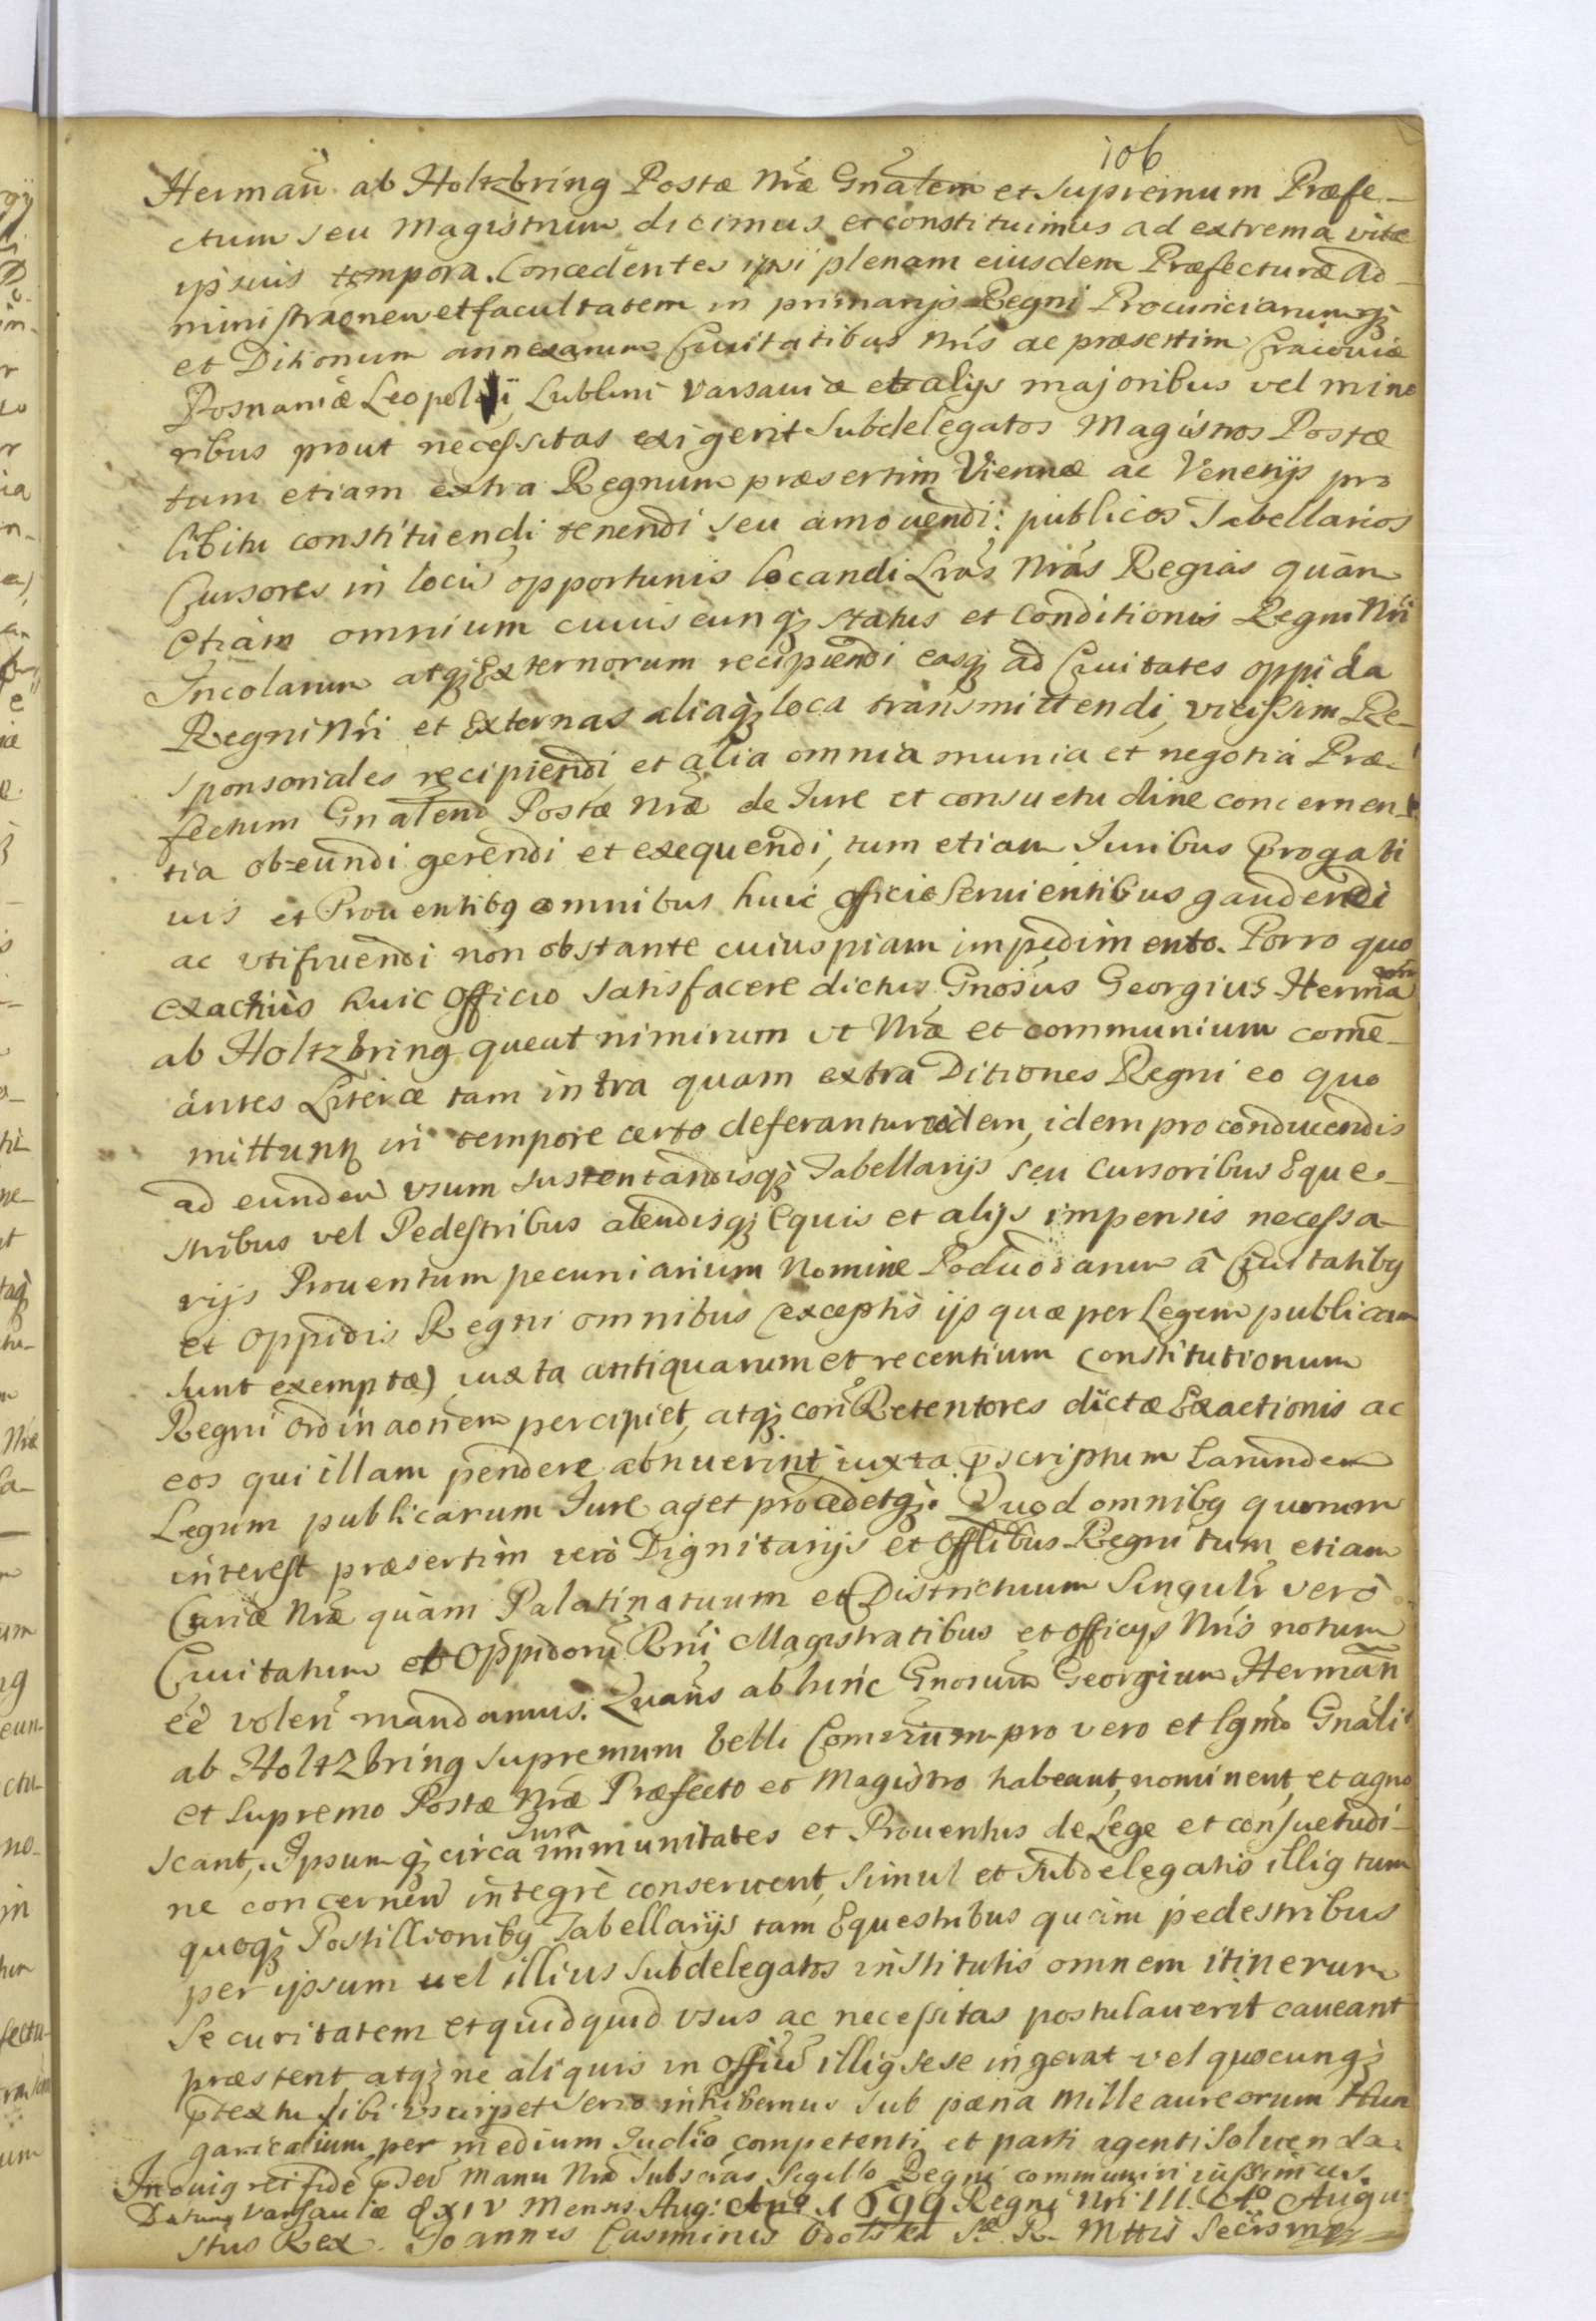 106
Herman̄ ab Holtzbring Postæ Nræ Gnalem et Supremum Præfe-
ctum seu Magistrum dicimus et constituimus ad extrema vitæ
ipsius tempora. Concedentes ipsi plenam eiusdem Præfecturæ ad-
ministraonem et facultatem in primarijs Regni Prouinciarumq;
et Ditionum annexarum Ciuitatibus Nris ac præsertim Cracouiæ
Posnaniæ Leopoli Lublini Varsauiæ et alijs majoribus vel mino
ribus prout necessitas exigerit Subdelegatos Magistros Postæ
tum etiam extra Regnum præsertim Viennæ ac Venetijs pro
libitu constituendi tenendi seu amouendi: publicos Tabellarios
Cursores in locis opportunis locandi Lras Nras Regias quam
Etiam omnium cuiuscunq; status et Conditionis Regni Nri
Incolarum atq; Externorum recipiendi easq; ad Ciuitates oppida
Regni Nri et Externas aliaq; loca transmittendi, vicissim Re-
sponsoriales recipiendi et alia omnia munia et negotia Præ-
fectum Gnalem Postæ Nræ de Iure et consuetudine concernen-
tia ob=eundi gerendi et exequendi, tum etiam Iuribus Prrogati
uis et Prouentibq omnibus huic officio Seruientibus gaudendi
ac vtifruendi non obstante cuiuspiam impedimento. Porro quo
exactius huic Officio satisfacere dictus Gnosus Georgius Herma
ab Holtzbring queat nimirum vt Nræ et communium comē-
antes Literæ tam intra quam extra Ditiones Regni eo quo
mittunq in tempore certo deferantur idem, idem pro conducendis
ad eundem vsum sustentandisq; Tabellarijs seu Cursoribus Eque-
stribus vel Pedestribus alendisq; Equis et alijs impensis necessa-
rijs Prouentum pecuniarium Nomine Poduodarum â Ciuitatibq
et Oppidis Regni omnibus (exceptis ijs quæ per Legem publicam
sunt exemptæ) iuxta antiquarum et recentium Constitutionum
Regni Ordinaonem percipiet, atq; con̄ Retentores dictæ Exactionis ac
eos qui illam pendere abnuerint iuxta pscriptum Earundem
Legum publicarum Iure aget procedetq;. Quod omnibq quorum
interest præsertim verò Dignitarijs et Offlibus Regni tum etiam
Curiæ Nræ quàm Palatinatuum et Districtuum Singulr verò
Ciuitatum et Oppidorū Rni Magistratibus et officijs Nris notum
eè volen̄ mandamus. Quaīns ab hinc Gnosum Georgium Herman̄
ab Holtzbring supremum belli Com̄rium pro vero et lgm̄o Gnali
et Supremo Postæ Nræ Præfecto et Magistro habeant, nominent, et agno
scant, Ipsumq; circa Iura immunitates et Prouentus de Lege et consuetudi-
ne concernen̄ integrè conseruent, Simul et Subdelegatis illiq tum
quoq; Postillionibq Tabellarijs tam Equestribus quàm pedestribus
per ipsum vel illius Subdelegatos institutis omnem itinerum
Securitatem et quidquid vsus ac necessitas postulauerit caueant
præstent atq; ne aliquis in Offium illiq sese ingerat vel quocunq;
prtextu sibi vsurpet serio inhibemus sub pæna Mille aureorum Hun
garicalium per medium Iudio competenti et parti agenti soluenda.
In cuiq rei fidē pntem Manu Nra Subscras Sigillo Regni communiri iussimus.
Datum Varsauiæ d XIV Mensis Aug: Ano 1699 Regni Nri III. Ao Augu
stus Rex. Joannes Casimirus S. R. Mttis Secrsmp